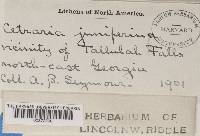 Lichens of North America.
Cetraria juniperina
vicinity of Tallulah Falls
north-east Georgia
Coll. A. B. Seymour. 1901
HARVARD
HERBARIUM OF
LINCOLN W. RIDDLE